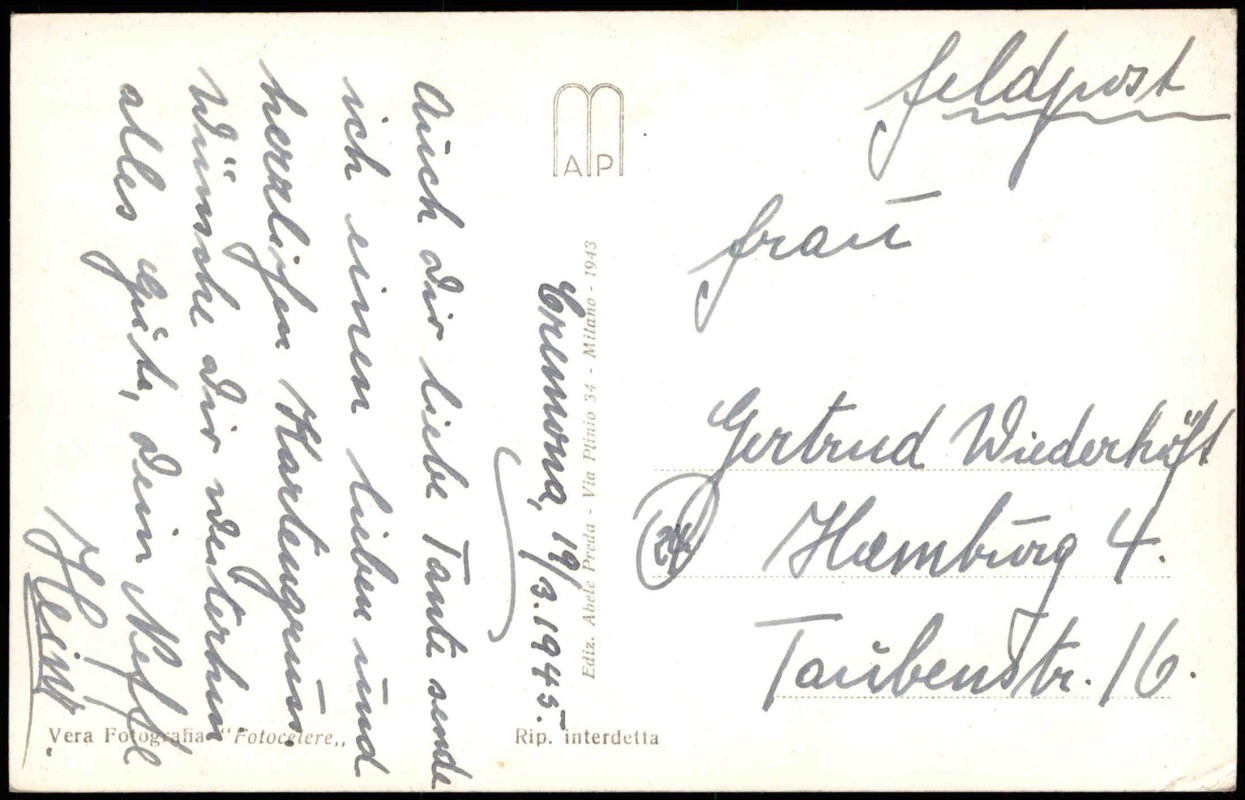 Cremona, 19/3.1945.
Auch dir liebe Tante sende
ich einen lieben und
herzlichen Kartengruss.
Wünsche dir weiterhin
alles gute, dein Neffe
Heinz.
A P
Ediz. Abele Preda - Via Plinio 34 - Milano - 1943
Vera Fotografia "Fotocelere„
Rip. interdetta
Feldpost
Frau
Gertrud Wiederhöft
(24) Hamburg 4.
Taubenstr. 16.